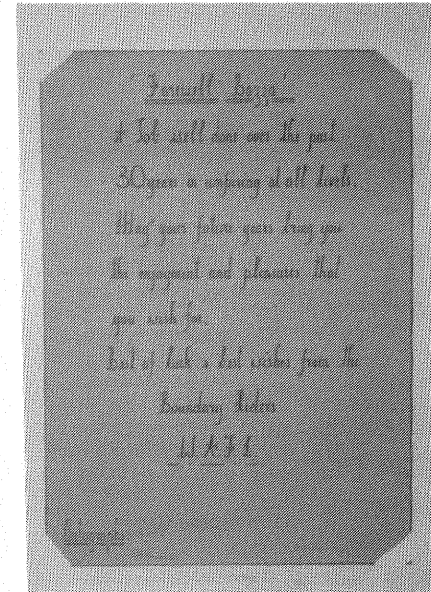 "Farewell Bozza"
A Job well done over the past
30 years in umpiring at all levels.
May your future years bring you
the enjoyment and pleasures that
you wish for.
Best of luck & best wishes from the
Boundary Riders
W A F L
Autographs